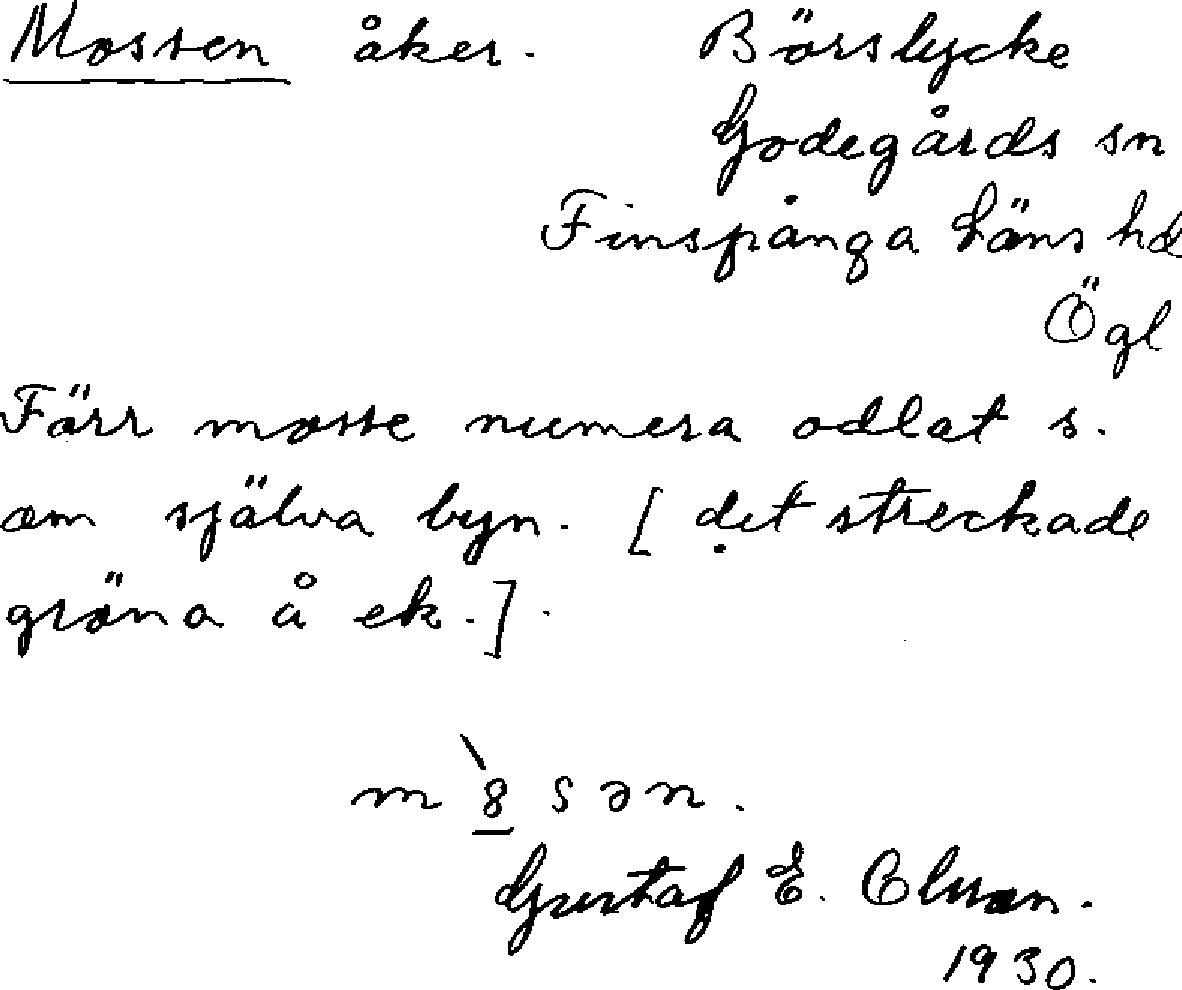 Mossen åker. Börslycke
Godegårds sn
Finspånga läns hd
Ögl
Förr mosse numera odlat s.
om själva byn. [det streckade
gröna å ek.].
m`8sən.
Gustaf E. Olsson.
1930.